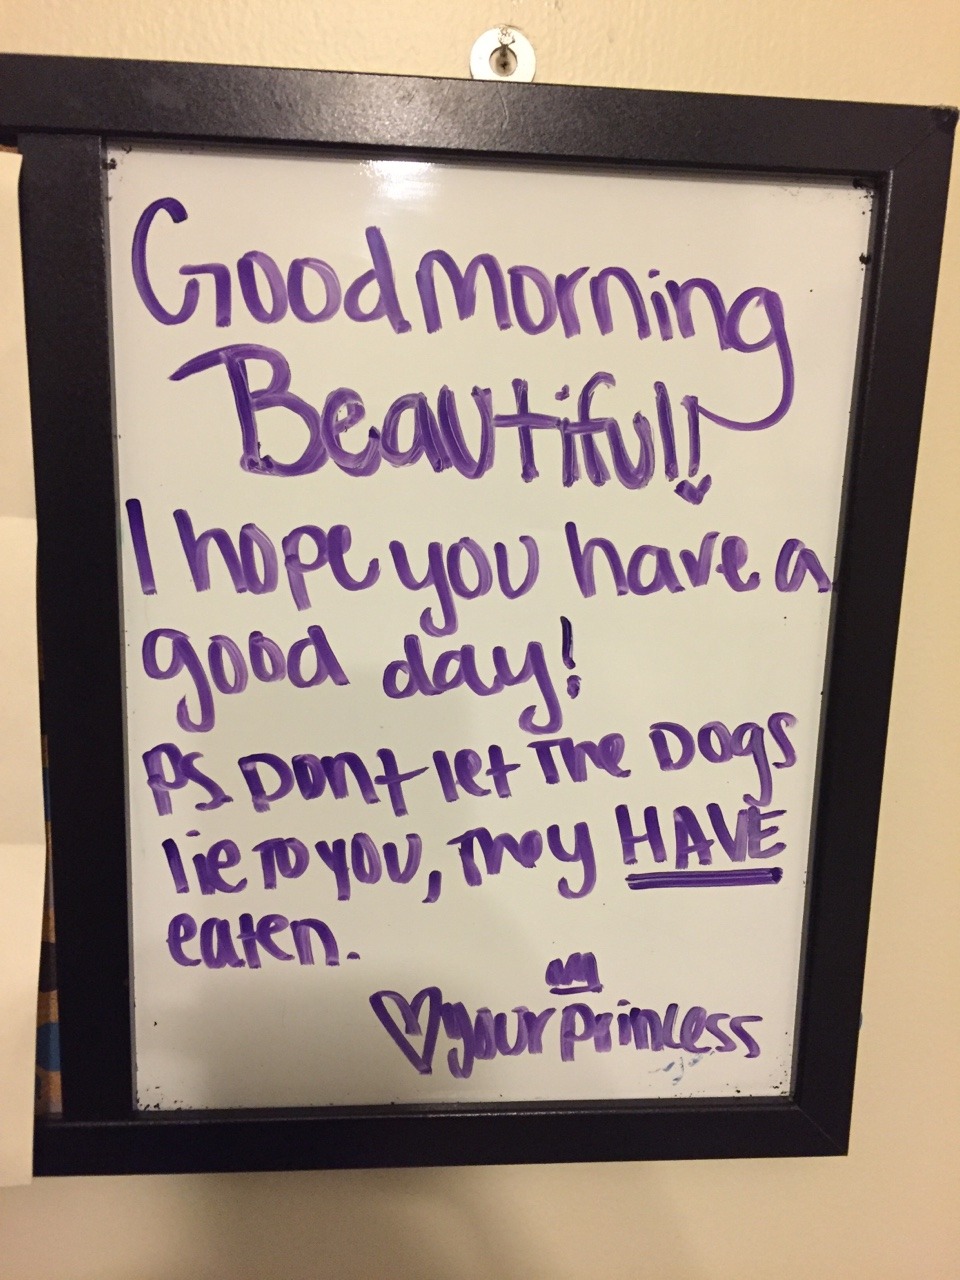 Good morning
Beautiful!
I hope you have a
good day!
PS. Dont let The Dogs
lie To you, They HAVE
eaten.
♡ your princess